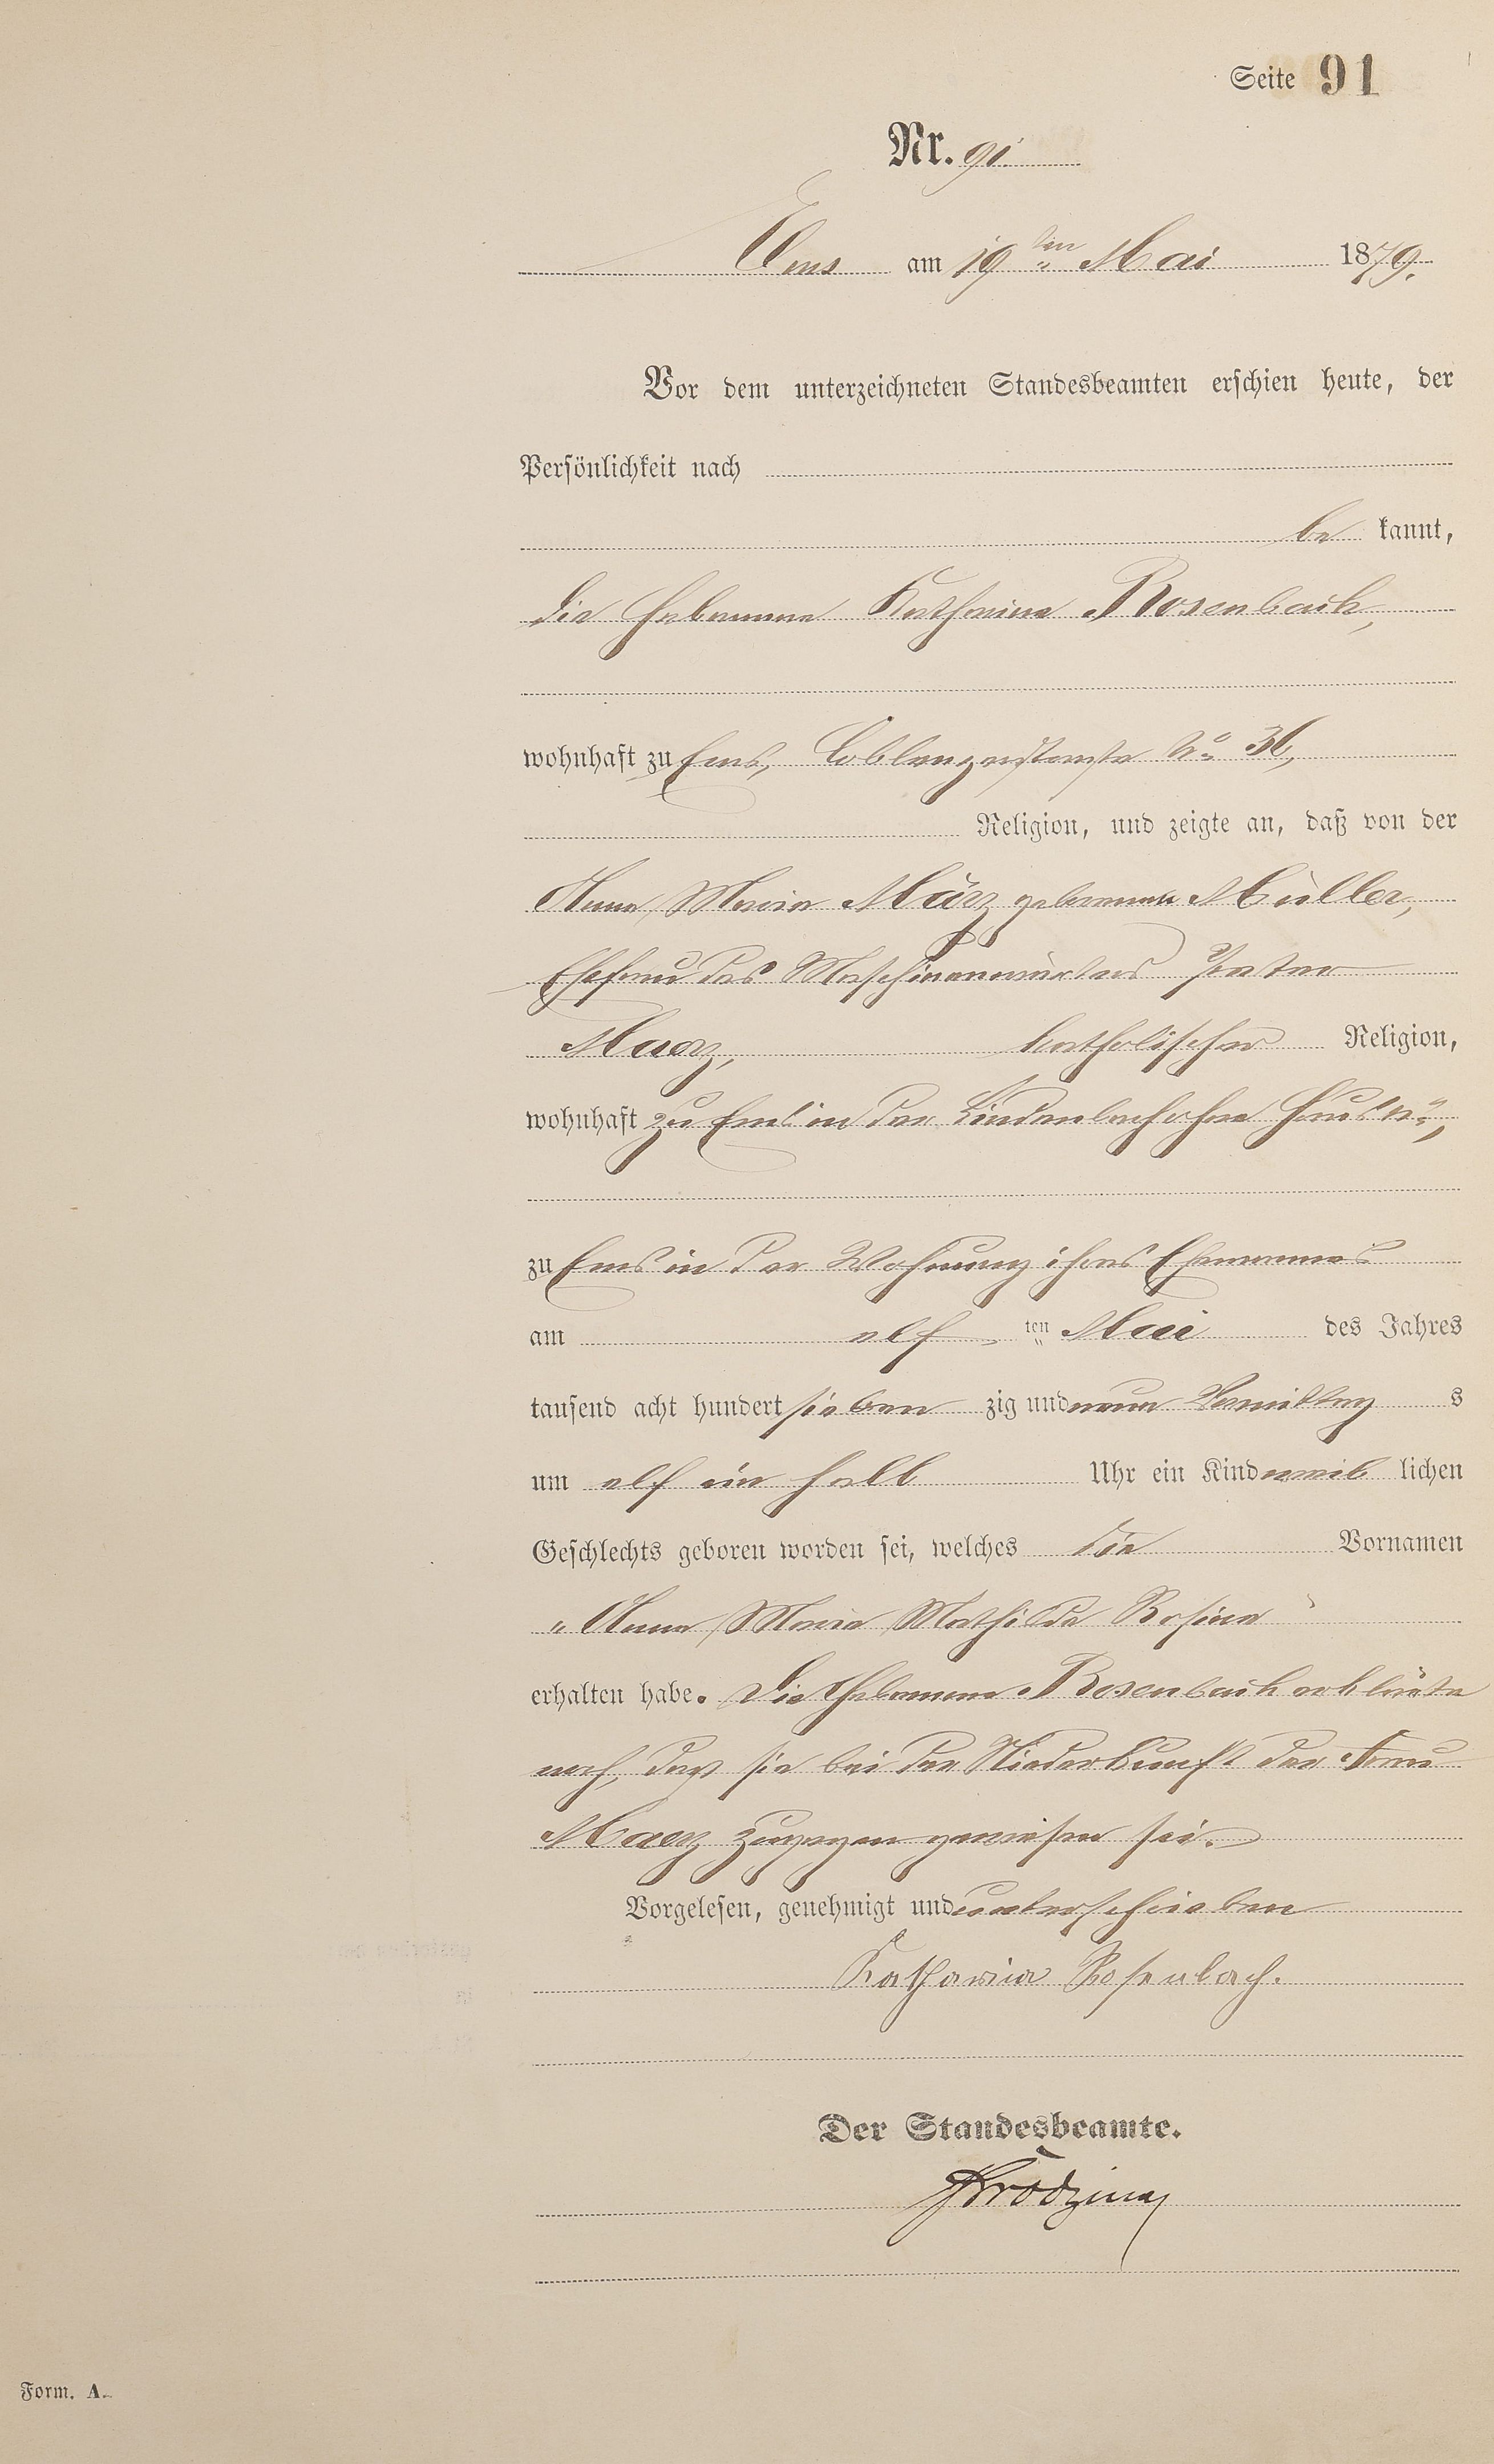 Seite 91
Nr. 91
Ems am 19ten Mai 1879.
Vor dem unterzeichneten Standesbeamten erschien heute, der
Persönlichkeit nach
be kannt,
die Hebamme Katharina Rosenbach,
wohnhaft zu Ems, Coblenzerstraße No 36,
Religion, und zeigte an, daß von der
Anna Maria März geborenen Müller,
Ehefrau des Maschinenwärters Peter
Maerz, katholischer Religion,
wohnhaft zu Ems in der Lindenbach ohne Haus No,
zu Ems in der Wohnung ihres Ehemannes
am elf ten Mai des Jahres
tausend acht hundert sieben zig und neun Vormittag s
um elf ein halb Uhr ein Kind weib lichen
Geschlechts geboren worden sei, welches die Vornamen
„Anna Maria Mathilde Rosina“
erhalten habe. Die Hebamme Rosenbach erklärte
noch, daß sie bei der Niederkunft der Frau
Maerz zugegen gewesen sei.
Vorgelesen, genehmigt und unterschrieben
Katharina Rosenbach.
Der Standesbeamte.
Form. A.